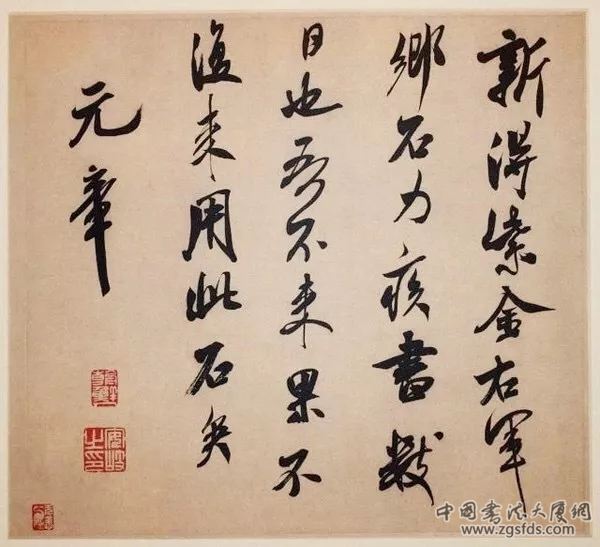 新得紫金右軍
鄉石力疾書數
日也吾不来果不
復来用此石矣
元章
安岐之印
中國書法大厦網
www.zgsfds.com